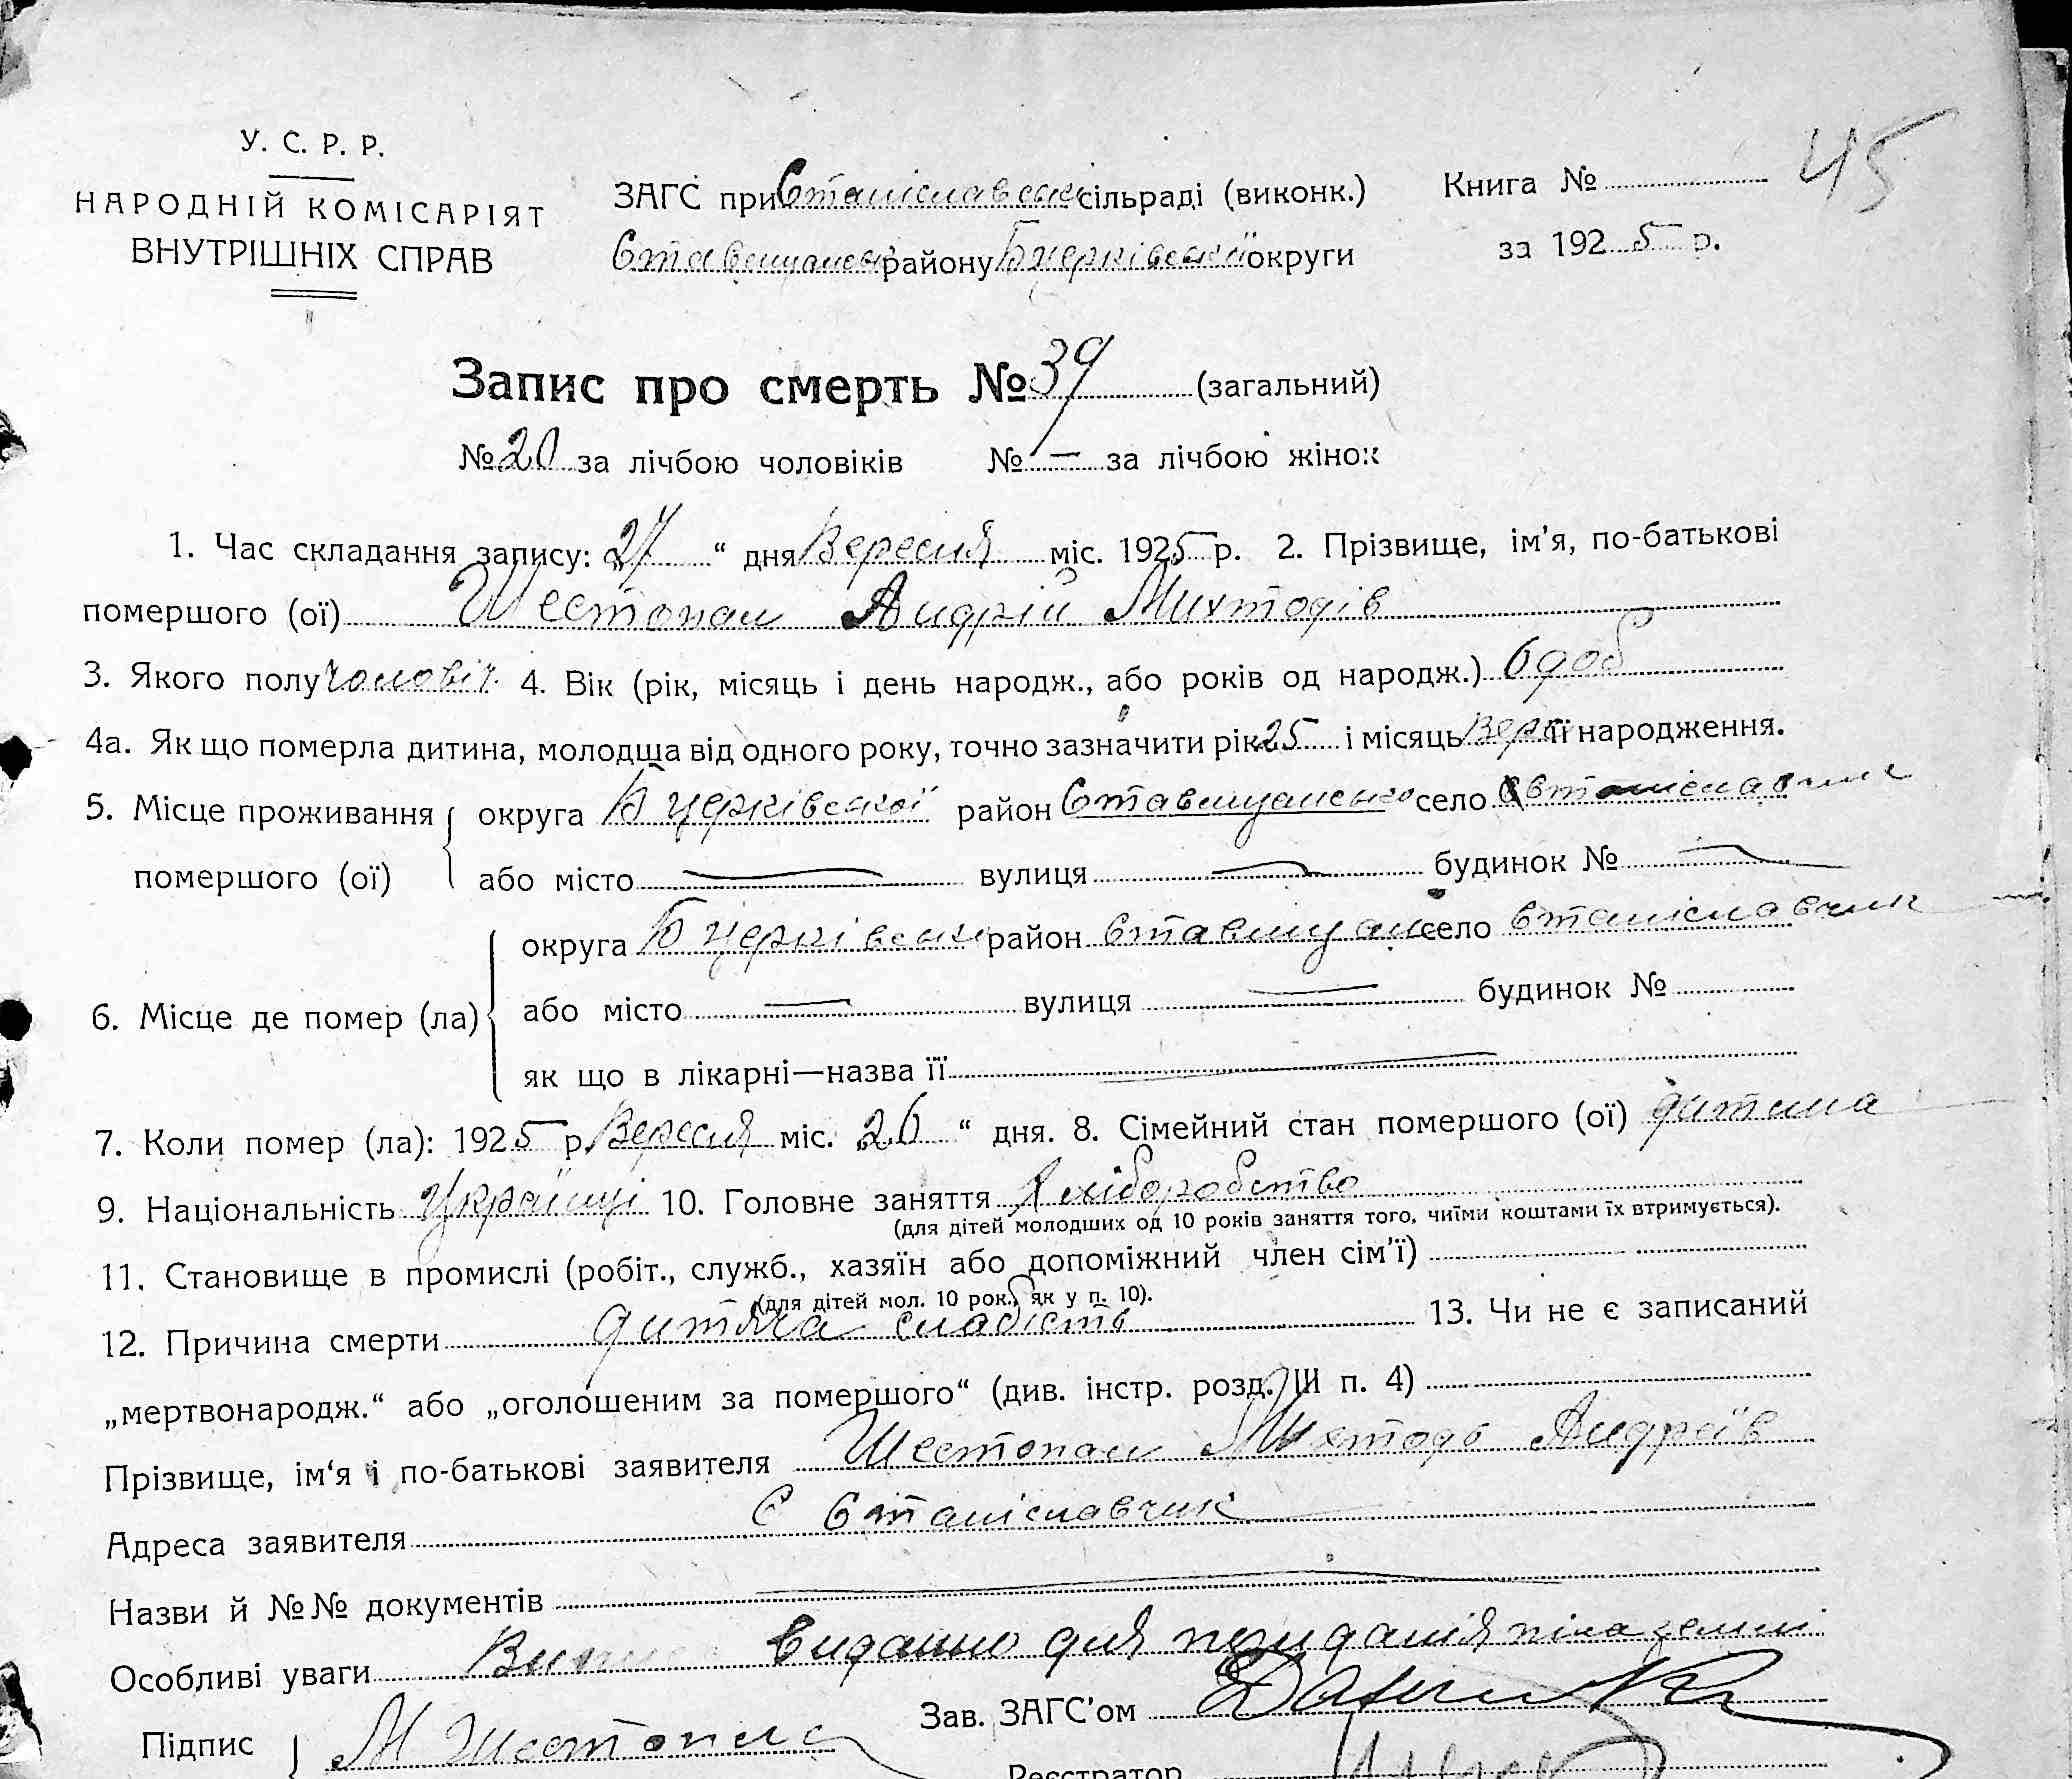 45
У. С. Р. Р.
НАРОДНІЙ КОМІСАРІЯТ
ВНУТРІШНІХ СПРАВ
ЗАГС при Станіславськ сільраді (виконк.)
Ставищанськ району Б церківської округи
Книга №
за 1925 р.
Запис про смерть № 39 (загальний)
№ 20 за лічбою чоловіків № — за лічбою жінок
1. Час складання запису: 27 “ дня Вересня міс. 1925 р. 2. Прізвище, ім’я, по-батькові
помершого (ої) Шестопал Андрій Михтодів
3. Якого полу чоловіч. 4. Вік (рік, місяць і день народж., або років од народж.) 6 доб
4а. Як що померла дитина, молодша від одного року, точно зазначити рік 25 і місяць Вер її народження.
5. Місце проживання помершого (ої) округа Б церківської район Ставищансько село Станіславчик
або місто — вулиця — будинок № —
6. Місце де помер (ла) округа Б церківськ район Ставищанс село Станіславчик
або місто — вулиця — будинок №
як що в лікарні—назва її —
7. Коли помер (ла): 1925 р. Вересня міс. 26 “ дня. 8. Сімейний стан помершого (ої) дитина
9. Національність Українці 10. Головне заняття Хліборобство
(для дітей молодших од 10 років заняття того, чиїми коштами їх втримується).
11. Становище в промислі (робіт., служб., хазяїн або допоміжний член сім’ї)
(для дітей мол. 10 рок. як у п. 10).
12. Причина смерти дитяча слабість 13. Чи не є записаний
„мертвонародж.“ або „оголошеним за помершого“ (див. інстр. розд. III п. 4)
Прізвище, ім‘я і по-батькові заявителя Шестопал Михтодь Андреїв
Адреса заявителя С Станіславчик
Назви й №№ документів —
Особливі уваги видано для
Зав. ЗАГС’ом
Підпис М Шестопал
Реєстратор